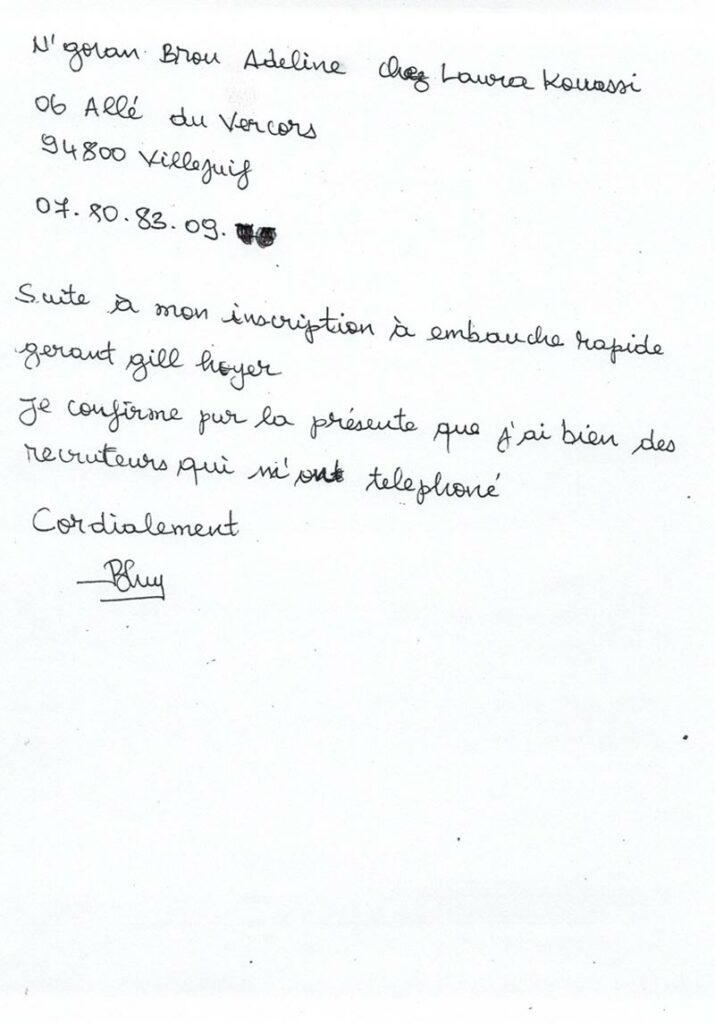 N'goran Brou Adeline chez Laura Kouassi
06 Allé du Vercors
94800 Villejuif
07.80.83.09.
Suite à mon inscription à embauche rapide
gerant gill hoyer
Je confirme pur la présente que j'ai bien des
recruteurs qui m'ont telephoné
Cordialement